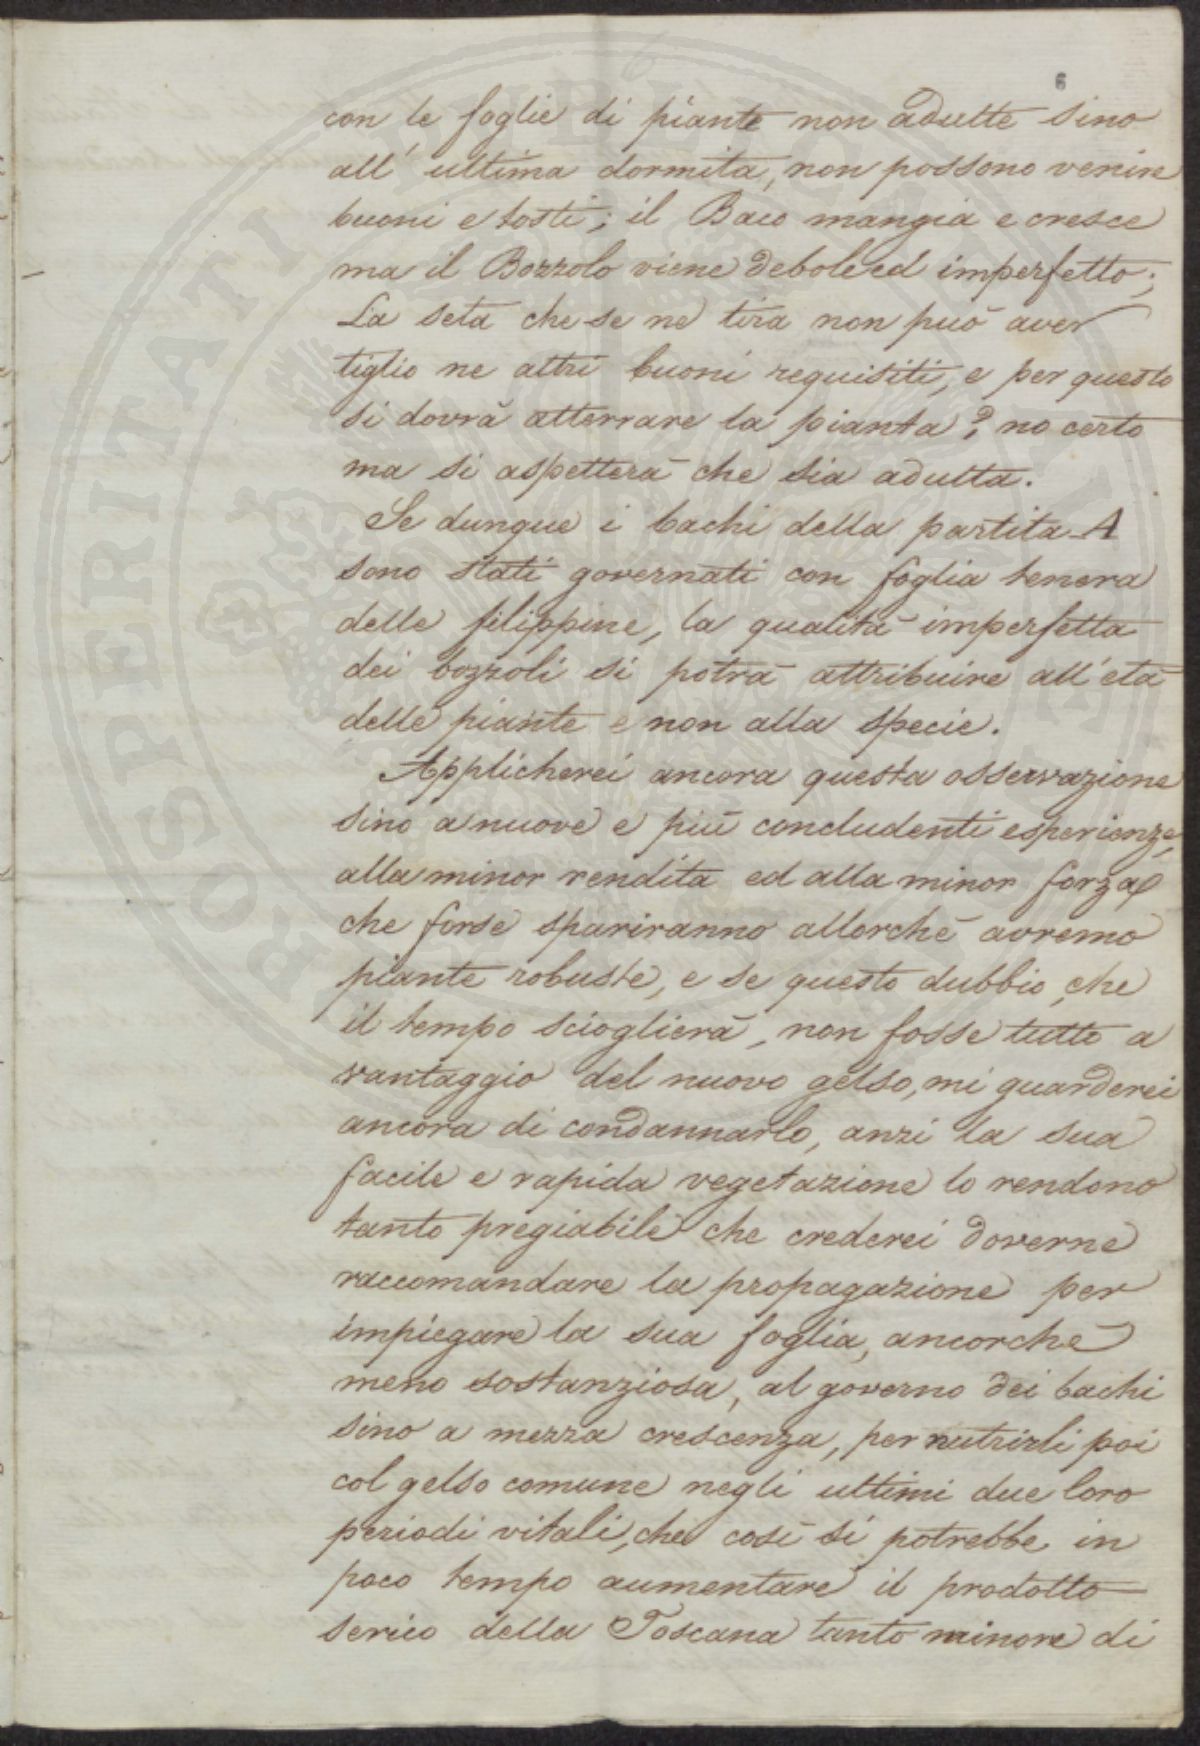 6
con le foglie di piante non adulte sino
all' ultima dormita, non possono venire
buoni e tosti; il Baco mangia e cresce
ma il Bozzolo viene debole ed imperfetto;
La seta che se ne tira non può aver
tiglio ne altri buoni requisiti, e per questo
si dovrà atterrare la pianta? no certo
ma si aspetterà che sia adulta.
Se dunque i bachi della partita A
sono stati governati con foglia tenera
delle filippine, la qualità imperfetta
dei bozzoli si potrà attribuire all'età
delle piante e non alla specie.
Applicherei ancora questa osservazione
sino a nuove e più concludenti esperienze,
alla minor rendita ed alla minor forza
che forse spariranno allorchè avremo
piante robuste, e se questo dubbio, che
il tempo scioglierà, non fosse tutto a
vantaggio del nuovo gelso, mi guarderei
ancora di condannarlo, anzi la sua
facile e rapida vegetazione lo rendono
tanto pregiabile che crederei doverne
raccomandare la propagazione per
impiegare la sua foglia, ancorchè
meno sostanziosa, al governo dei bachi
sino a mezza crescenza, per nutrirli poi
col gelso comune negli ultimi due loro
periodi vitali, che così si potrebbe in
poco tempo aumentare il prodotto
serico della Toscana tanto minore di
PROSPERITATI PUBLICAE